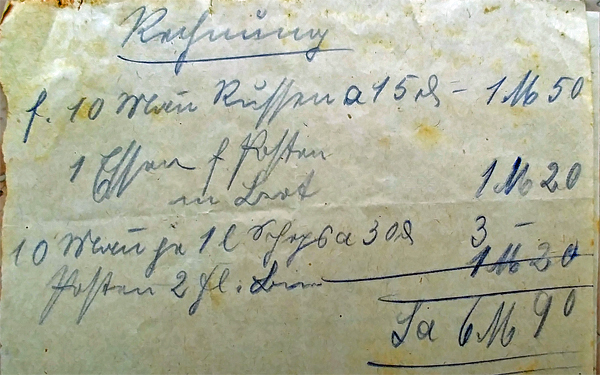 Rechnung
f. 10 Mann Russen a 15 ₰ = 1 M 50
1 Essen f Posten
m Brot 1 M 20
10 Mann je 1 l Schops a 30 ₰ 3 -
Posten 2 Fl. 1 M 20
Sa 6 M 90